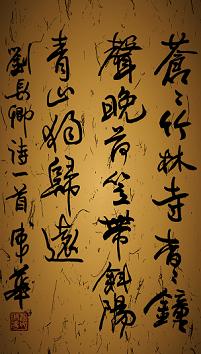 蒼々竹林寺杳々鐘
聲晚荷笠帶斜陽
青山獨歸遠
劉長卿诗一首 東華